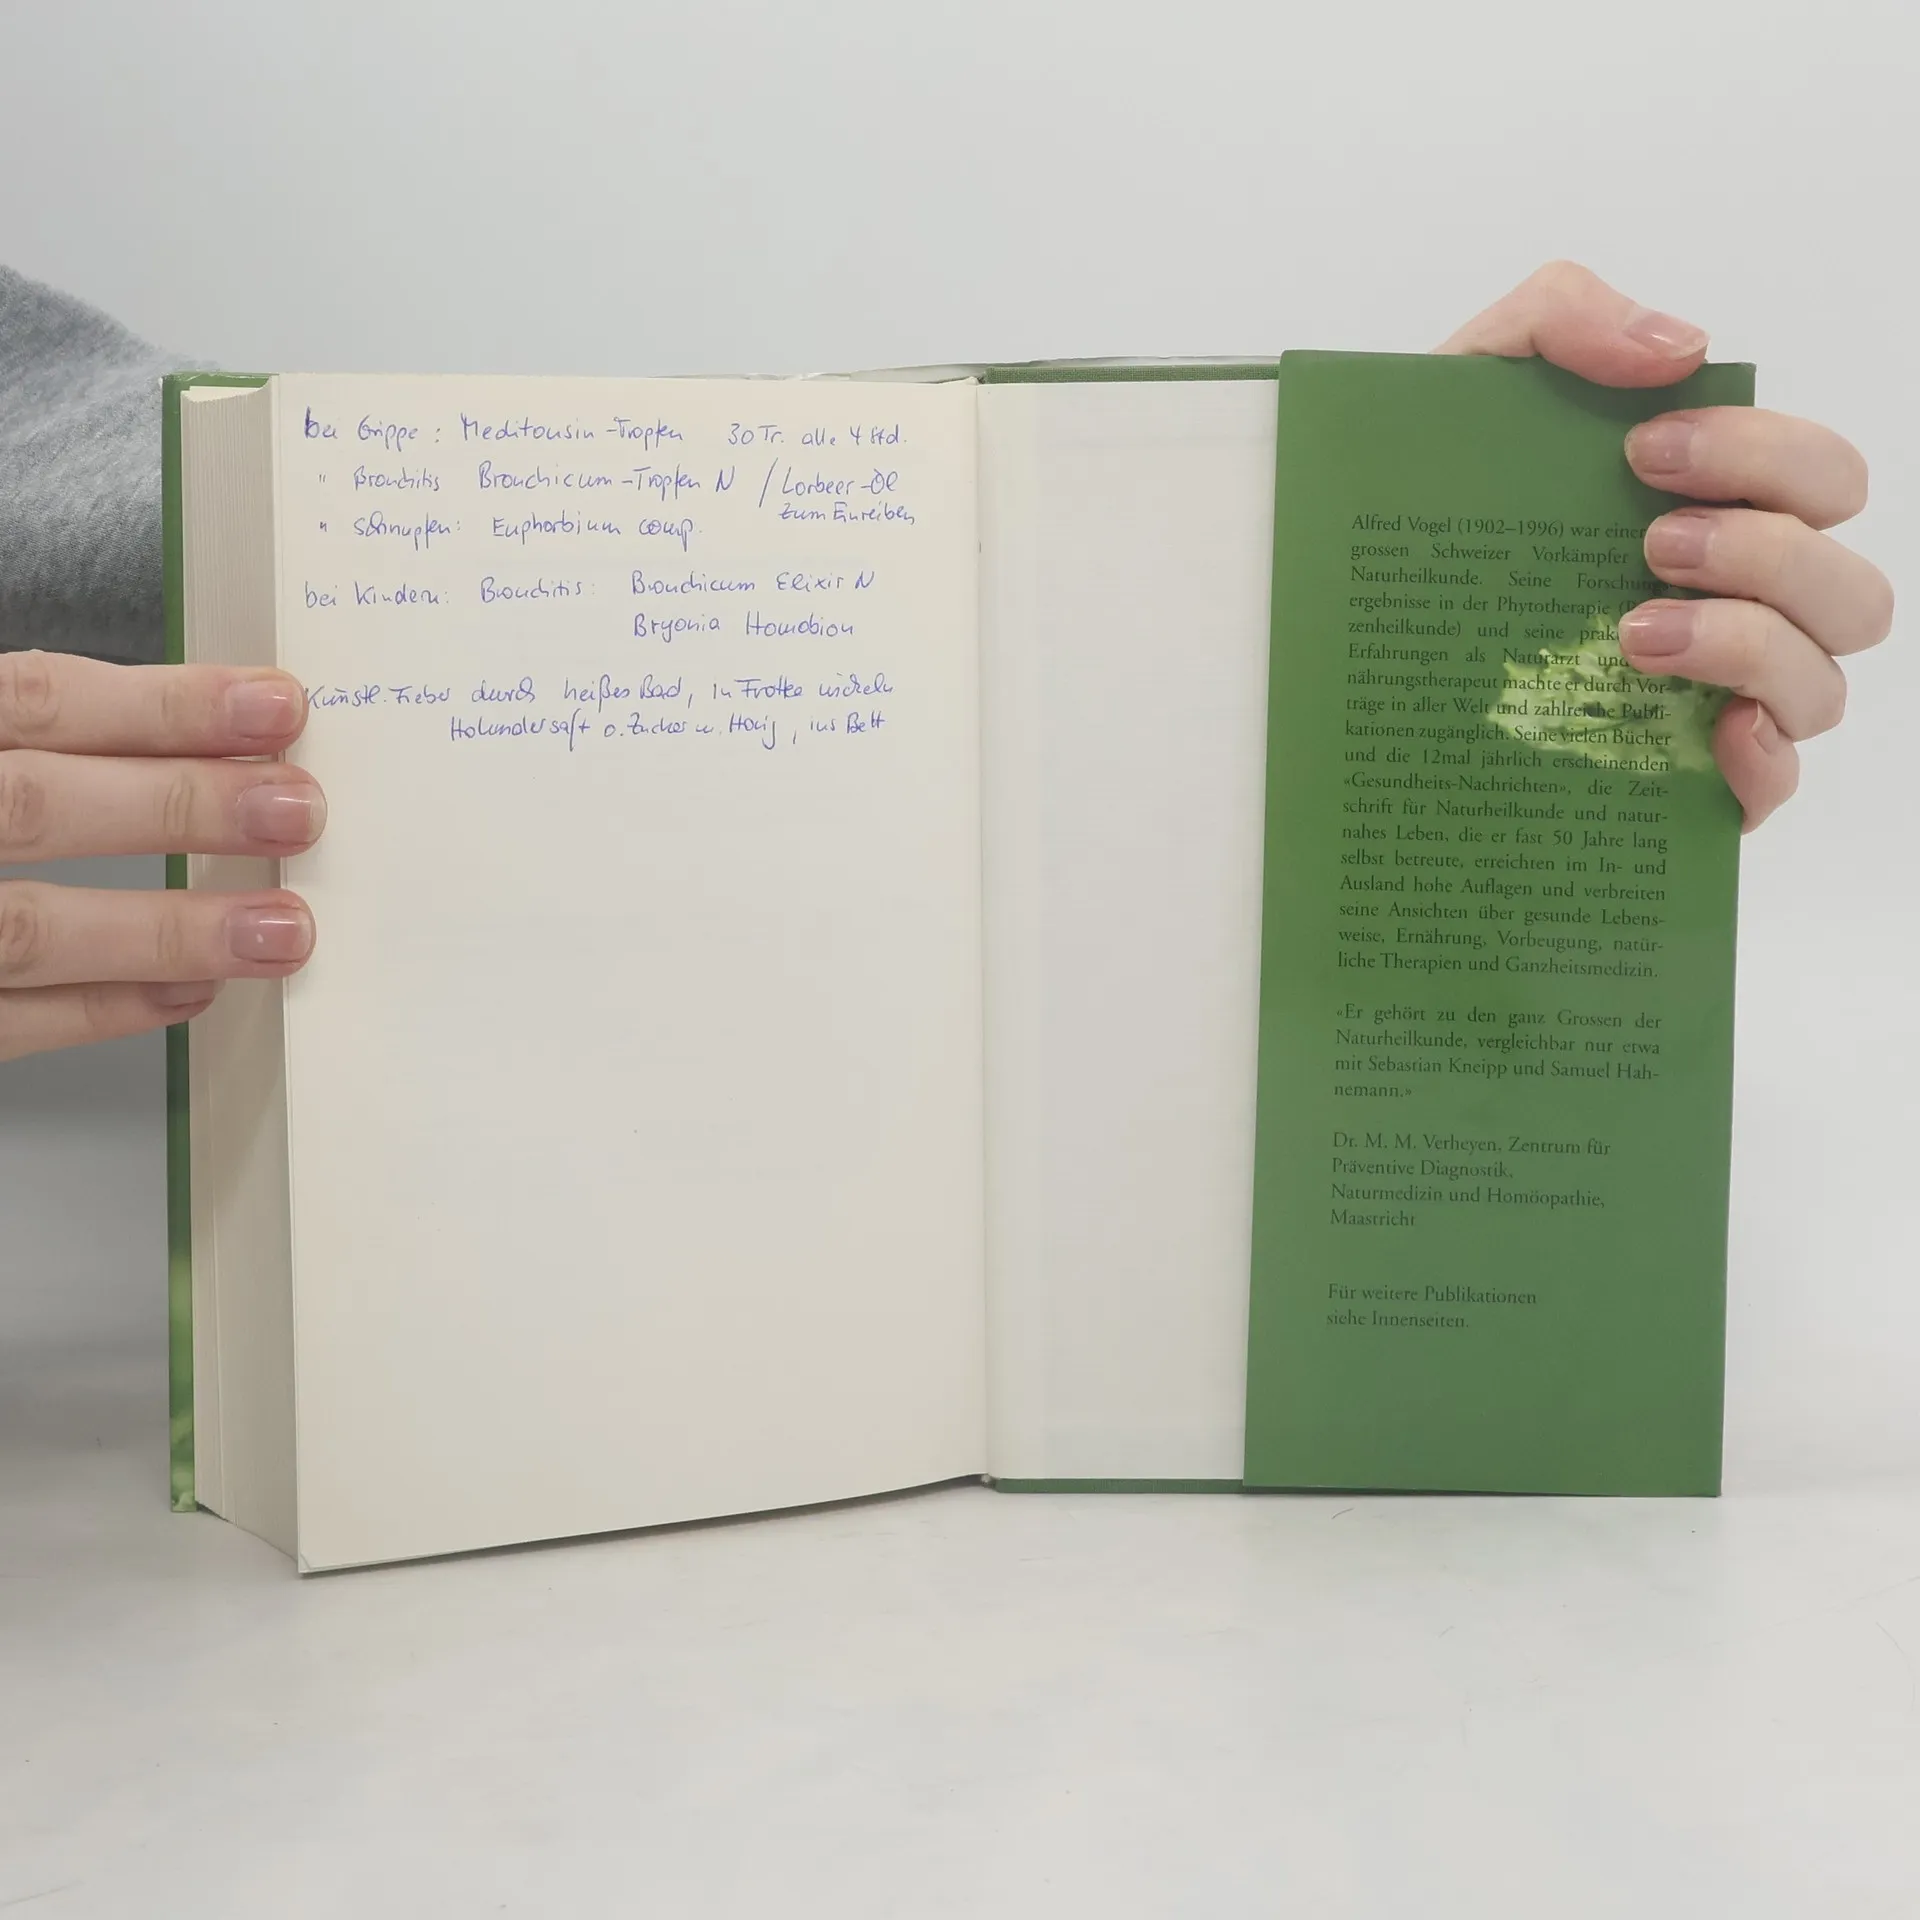 bei Grippe: Meditonsin-Tropfen 30 Tr. alle 4 Std.
" Bronchitis Bronchicum-Tropfen N / Lorbeer-Öl
zum Einreiben
" Schnupfen: Euphorbium comp.
bei Kindern: Bronchitis: Bronchicum Elixir N
Bryonia Homobion
Künstl. Fieber durch heißes Bad, in Frottee wickeln
Holundersaft o. Zucker m. Honig, ins Bett
Alfred Vogel (1902–1996) war einer
grossen Schweizer Vorkämpfer
Naturheilkunde. Seine Forschungs-
ergebnisse in der Phytotherapie
zenheilkunde) und seine
Erfahrungen als Naturarzt und
nährungstherapeut machte er durch Vor-
träge in aller Welt und zahlreiche Publi-
kationen zugänglich. Seine vielen Bücher
und die 12mal jährlich erscheinenden
«Gesundheits-Nachrichten», die Zeit-
schrift für Naturheilkunde und natur-
nahes Leben, die er fast 50 Jahre lang
selbst betreute, erreichten im In- und
Ausland hohe Auflagen und verbreiten
seine Ansichten über gesunde Lebens-
weise, Ernährung, Vorbeugung, natür-
liche Therapien und Ganzheitsmedizin.
«Er gehört zu den ganz Grossen der
Naturheilkunde, vergleichbar nur etwa
mit Sebastian Kneipp und Samuel Hah-
nemann.»
Dr. M. M. Verheyen, Zentrum für
Präventive Diagnostik,
Naturmedizin und Homöopathie,
Maastricht
Für weitere Publikationen
siehe Innenseiten.